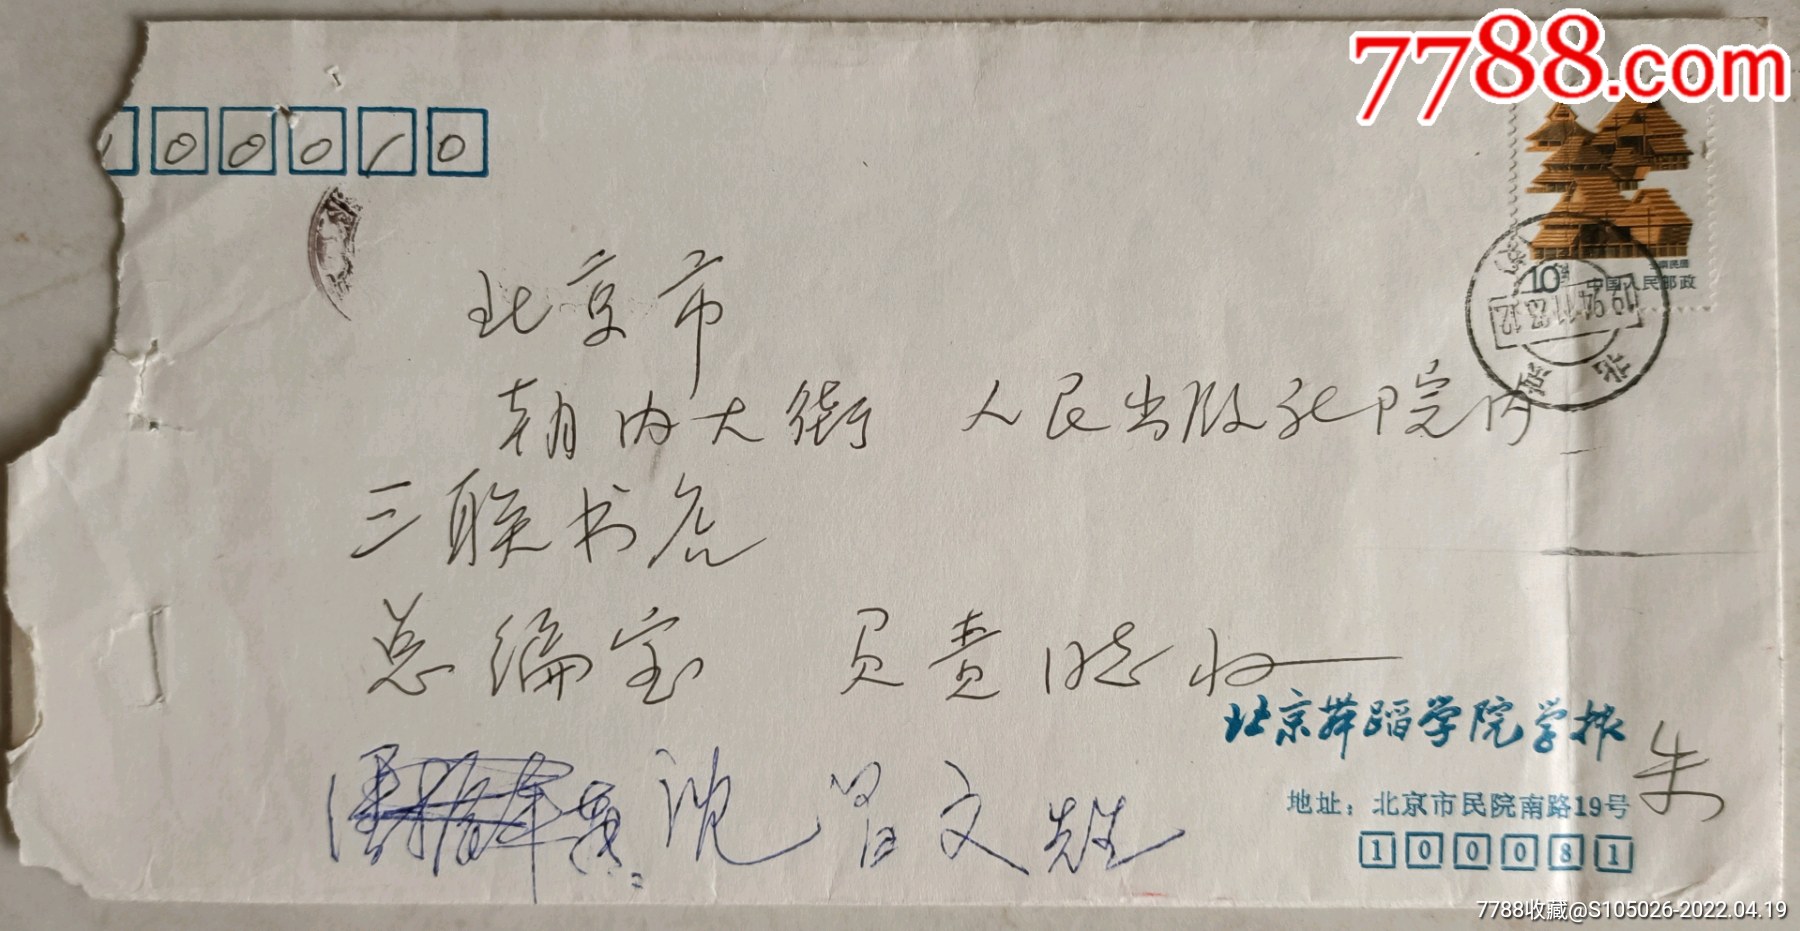 7788.com
100010
10分
中国人民邮政
1994.11.23.12
北京
北京市
朝内大街 人民出版社院内
三联书店
总编室 负责同志收
沈昌文先生
北京舞蹈学院学报
朱
地址：北京市民院南路19号
100081
7788收藏@S105026-2022.04.19